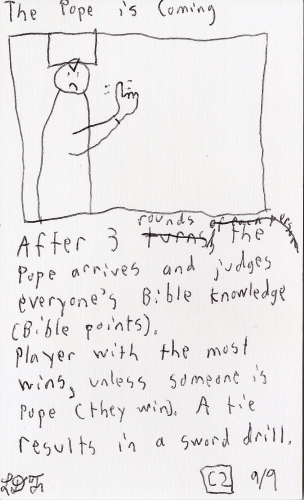 The Pope is Coming
After 3 rounds the
Pope arrives and judges
everyone's Bible knowledge
(Bible points).
Player with the most
wins, unless someone is
Pope (they win). A tie
results in a sword drill.
C2 9/9